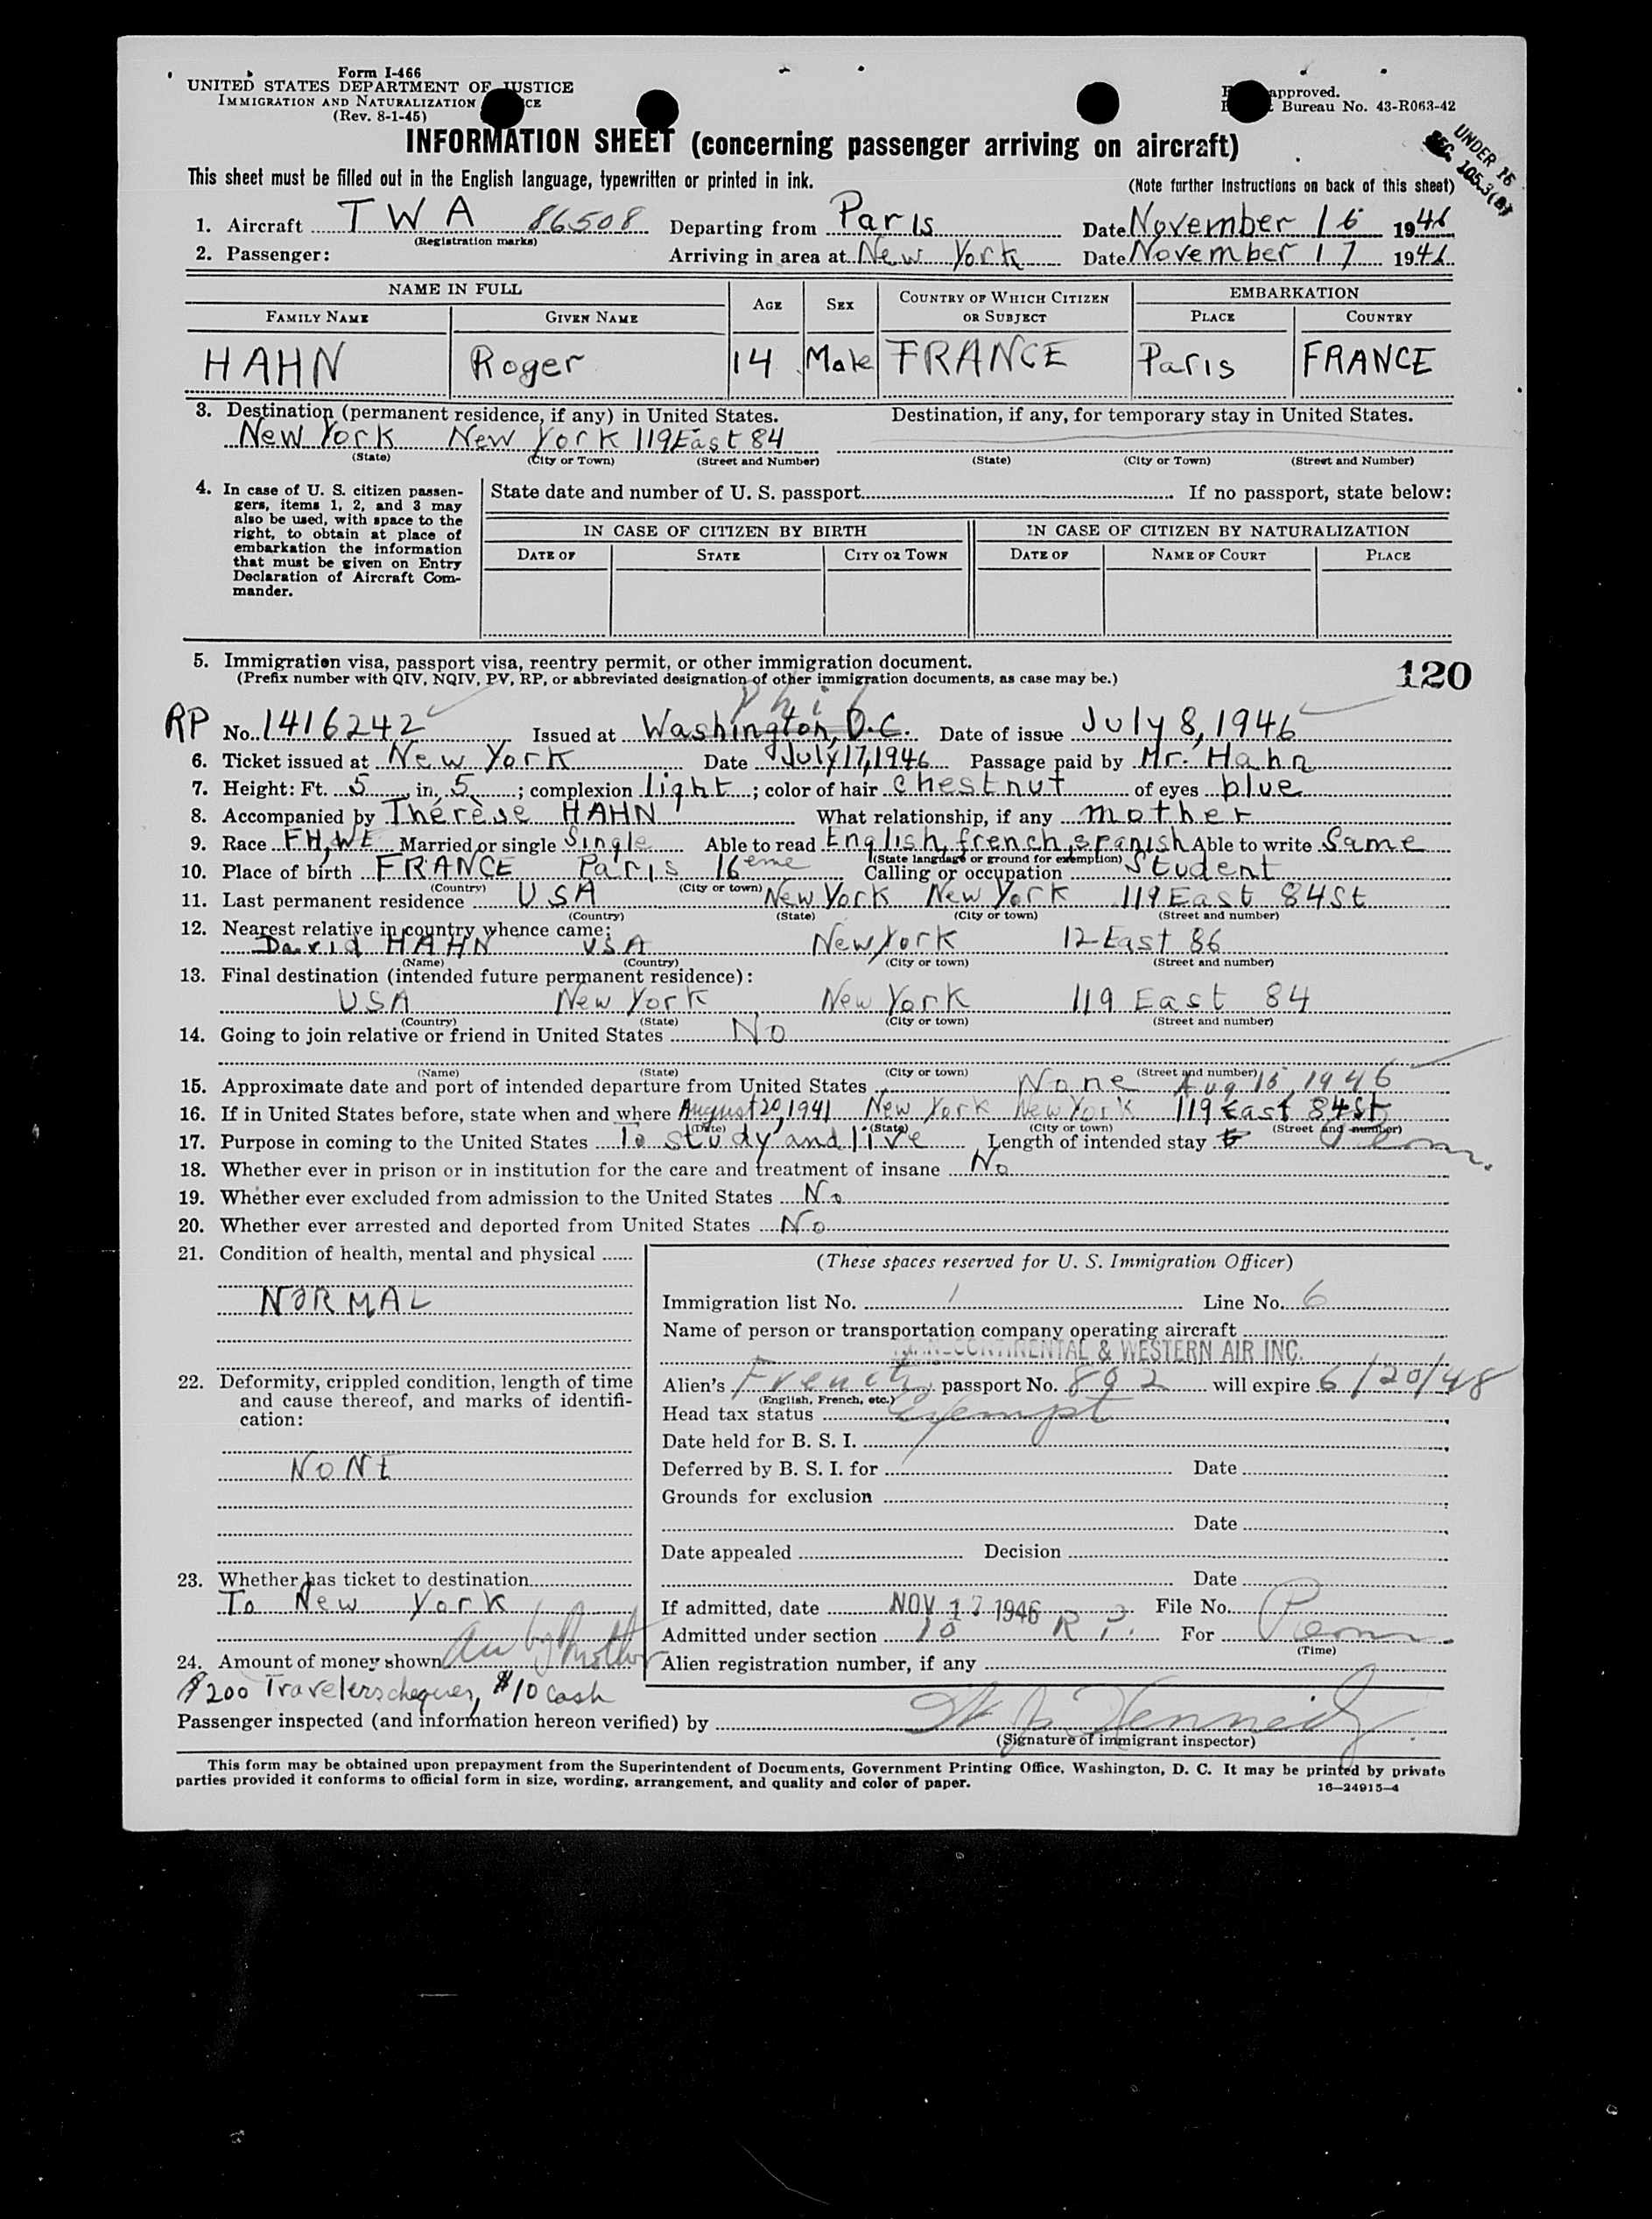 Form I-466
UNITED STATES DEPARTMENT OF JUSTICE
IMMIGRATION AND NATURALIZATION
(Rev. 8-1-45)
approved.
Bureau No. 43-R063-42
UNDER 16
SEC. 105.3(a)
INFORMATION SHEET (concerning passenger arriving on aircraft)
This sheet must be filled out in the English language, typewritten or printed in ink. (Note further instructions on back of this sheet)
1. Aircraft TWA 86508 Departing from Paris Date November 16 1946
(Registration marks)
2. Passenger: Arriving in area at New York Date November 17 1946
NAME IN FULL AGE SEX COUNTRY OF WHICH CITIZEN OR SUBJECT EMBARKATION
FAMILY NAME GIVEN NAME PLACE COUNTRY
HAHN Roger 14 Male FRANCE Paris FRANCE
3. Destination (permanent residence, if any) in United States. Destination, if any, for temporary stay in United States.
New York New York 119 East 84
(State) (City or Town) (Street and Number) (State) (City or Town) (Street and Number)
4. In case of U. S. citizen passen-
gers, items 1, 2, and 3 may
also be used, with space to the
right, to obtain at place of
embarkation the information
that must be given on Entry
Declaration of Aircraft Com-
mander.
State date and number of U. S. passport. If no passport, state below:
IN CASE OF CITIZEN BY BIRTH IN CASE OF CITIZEN BY NATURALIZATION
DATE OF STATE CITY OR TOWN DATE OF NAME OF COURT PLACE
5. Immigration visa, passport visa, reentry permit, or other immigration document.
(Prefix number with QIV, NQIV, PV, RP, or abbreviated designation of other immigration documents, as case may be.)
120
Phil
RP No. 1416242 Issued at Washington, D.C. Date of issue July 8, 1946
6. Ticket issued at New York Date July 17, 1946 Passage paid by Mr. Hahn
7. Height: Ft. 5 in. 5 ; complexion light ; color of hair chestnut of eyes blue
8. Accompanied by Thérèse HAHN What relationship, if any mother
9. Race FH, WE Married or single Single Able to read English, french, spanish Able to write Same
(State language or ground for exemption)
10. Place of birth FRANCE Paris 16eme Calling or occupation Student
(Country) (City or town)
11. Last permanent residence USA New York New York 119 East 84 St
(Country) (State) (City or town) (Street and number)
12. Nearest relative in country whence came:
David HAHN USA New York 12 East 86
(Name) (Country) (City or town) (Street and number)
13. Final destination (intended future permanent residence):
USA New York New York 119 East 84
(Country) (State) (City or town) (Street and number)
14. Going to join relative or friend in United States No
(Name) (State) (City or town) (Street and number)
15. Approximate date and port of intended departure from United States None Aug 15, 1946
16. If in United States before, state when and where August 20, 1941 New York New York 119 East 84 St
(Date) (State) (City or town) (Street and number)
17. Purpose in coming to the United States To study and live Length of intended stay Perm.
18. Whether ever in prison or in institution for the care and treatment of insane No
19. Whether ever excluded from admission to the United States No
20. Whether ever arrested and deported from United States No
21. Condition of health, mental and physical
NORMAL
22. Deformity, crippled condition, length of time
and cause thereof, and marks of identifi-
cation:
NONE
23. Whether has ticket to destination
To New York
24. Amount of money shown
$200 Travelerscheques, $10 cash
(These spaces reserved for U. S. Immigration Officer)
Immigration list No. 1 Line No. 6
Name of person or transportation company operating aircraft
TRANSCONTINENTAL & WESTERN AIR INC.
Alien's French passport No. 892 will expire 6/20/48
(English, French, etc.)
Head tax status Exempt
Date held for B. S. I.
Deferred by B. S. I. for Date
Grounds for exclusion
Date
Date appealed Decision
Date
If admitted, date NOV 17 1946 File No.
Admitted under section 10 R P. For Perm.
(Time)
Alien registration number, if any
Passenger inspected (and information hereon verified) by Kennedy
(Signature of immigrant inspector)
This form may be obtained upon prepayment from the Superintendent of Documents, Government Printing Office, Washington, D. C. It may be printed by private
parties provided it conforms to official form in size, wording, arrangement, and quality and color of paper.
16—24915-4